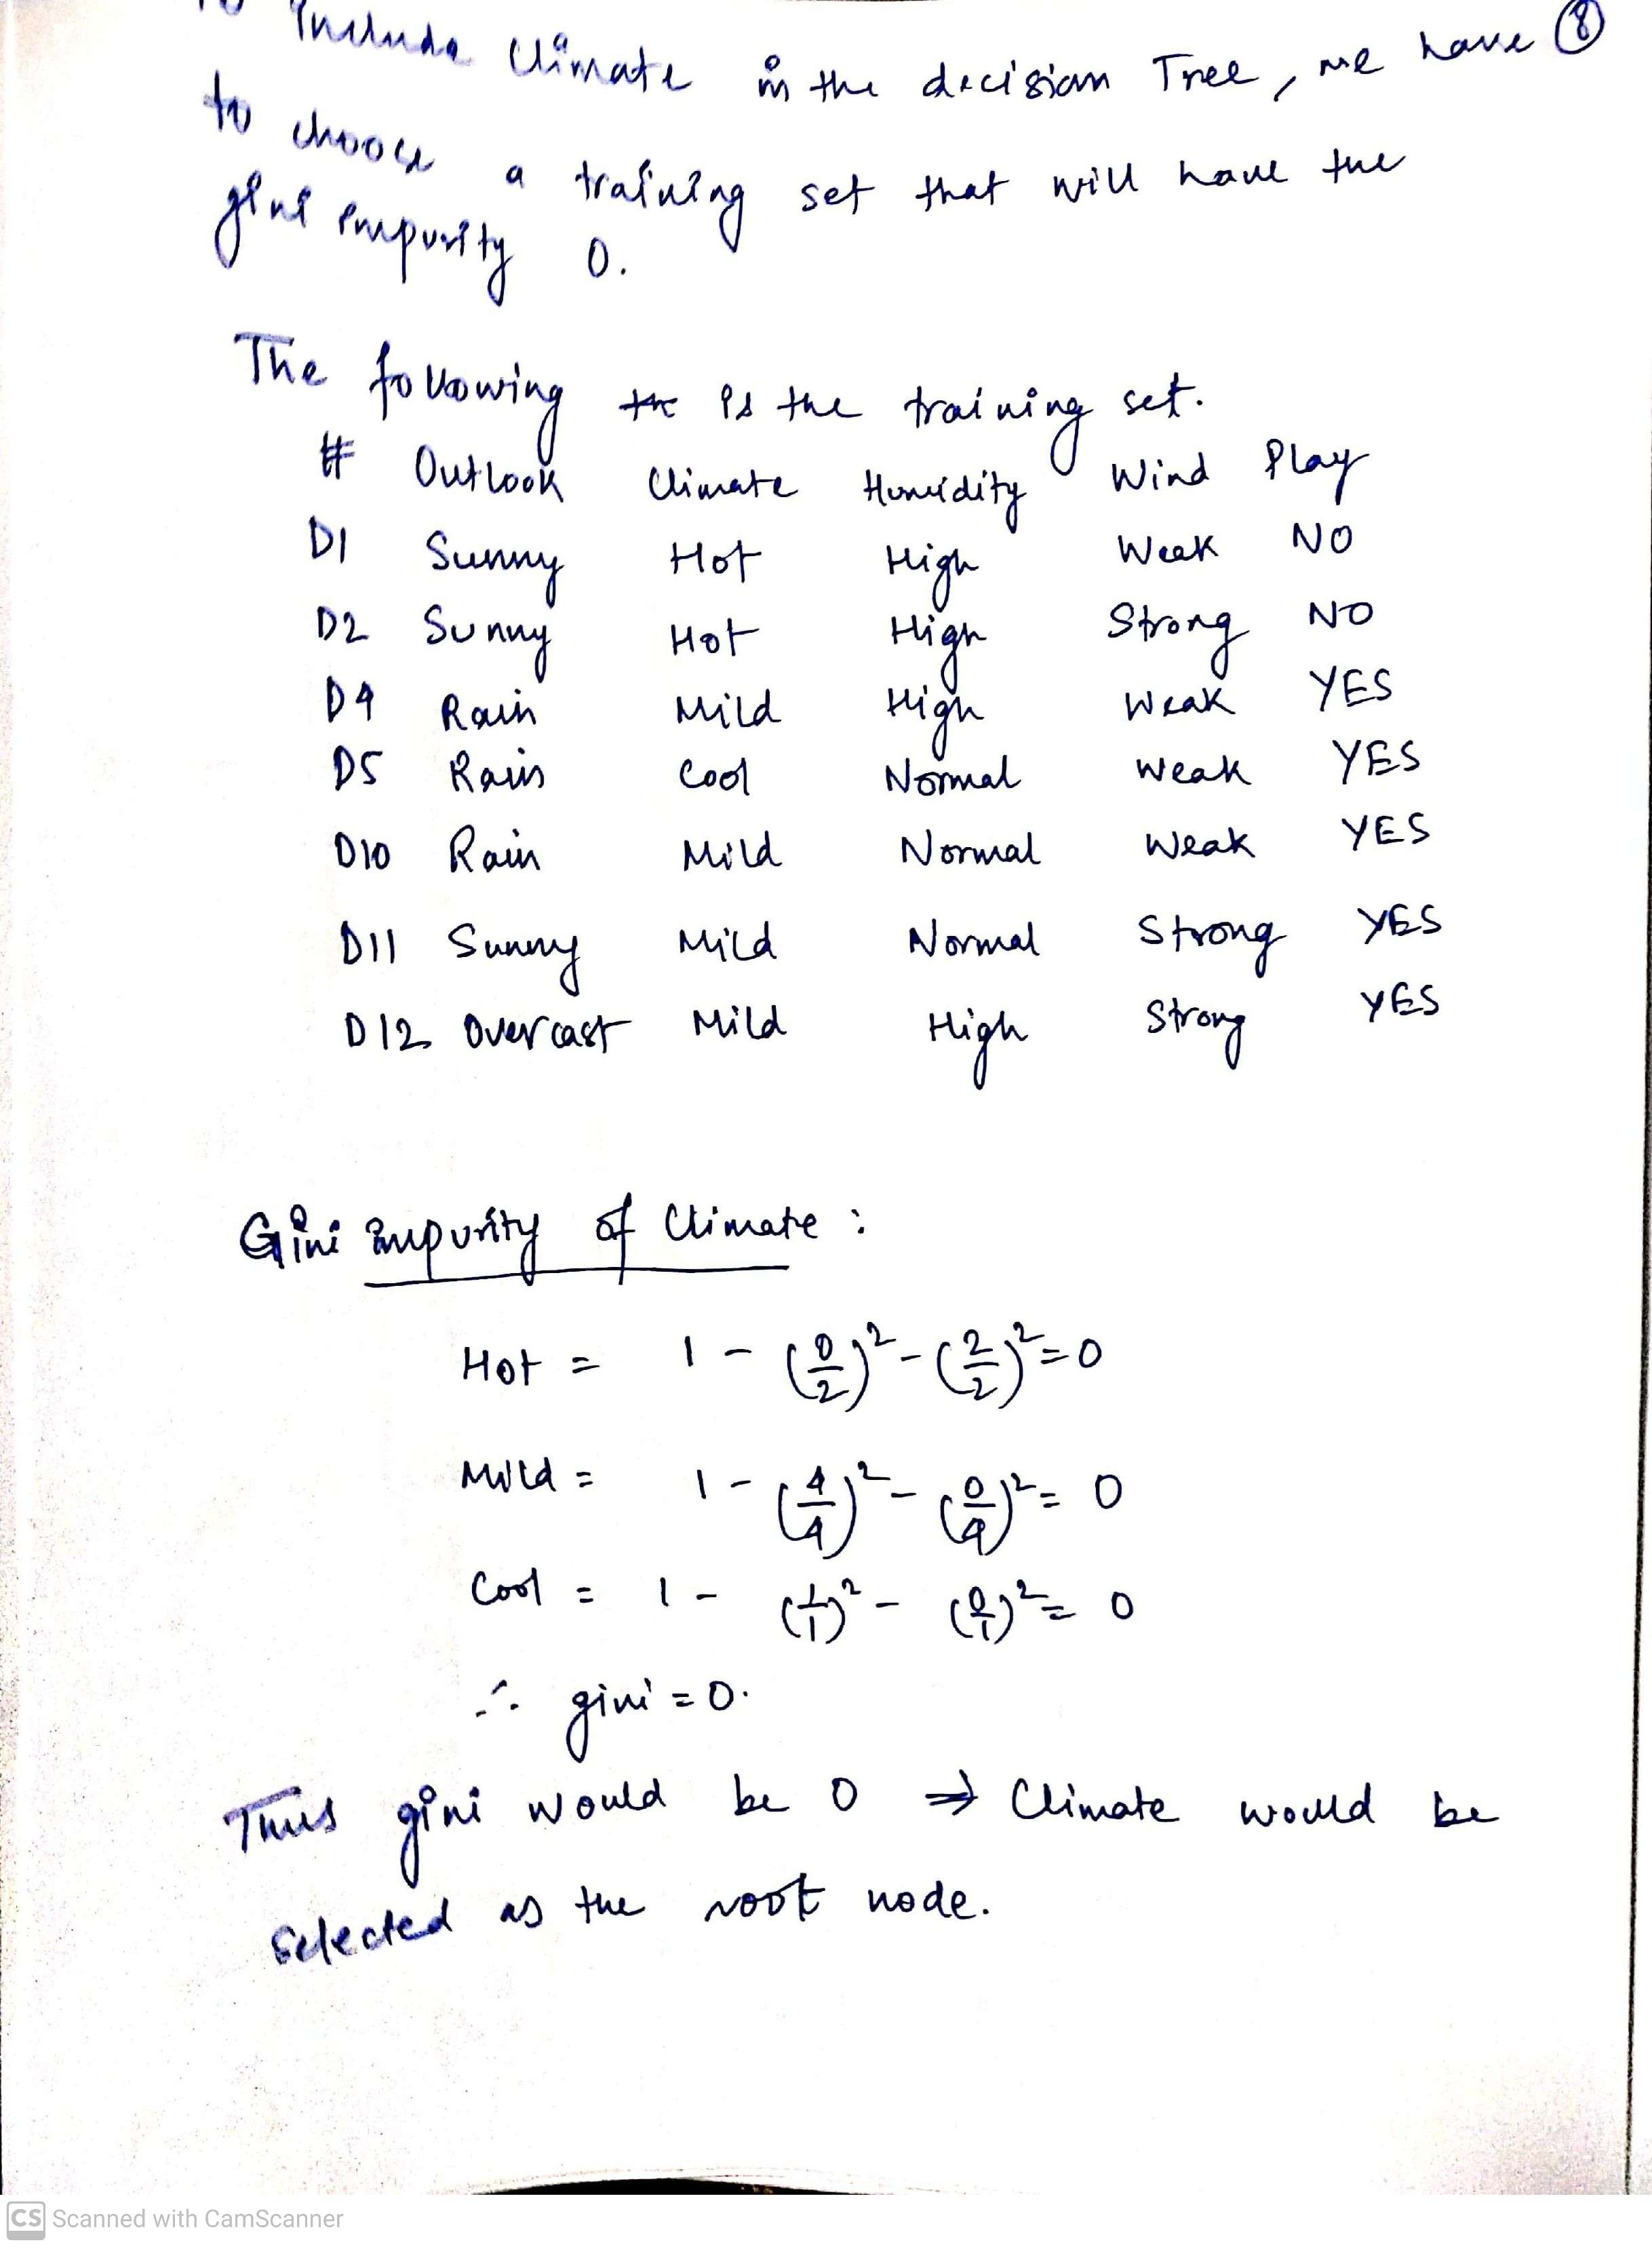 To Include Climate in the decision Tree, we have 8
to choose a training set that will have the
gini impurity 0.
The following the is the training set.
# Outlook Climate Humidity Wind Play
D1 Sunny Hot High Weak NO
D2 Sunny Hot High Strong NO
D4 Rain Mild High Weak YES
D5 Rain Cool Normal Weak YES
D10 Rain Mild Normal Weak YES
D11 Sunny Mild Normal Strong YES
D12 Overcast Mild High Strong YES
Gini impurity of Climate :
Hot = 1 - (0/2)² - (2/2)² = 0
Mild = 1 - (4/4)² - (0/4)² = 0
Cool = 1 - (1/1)² - (0/1)² = 0
∴ gini = 0.
Thus gini would be 0 ⇒ Climate would be
selected as the root node.
CS Scanned with CamScanner